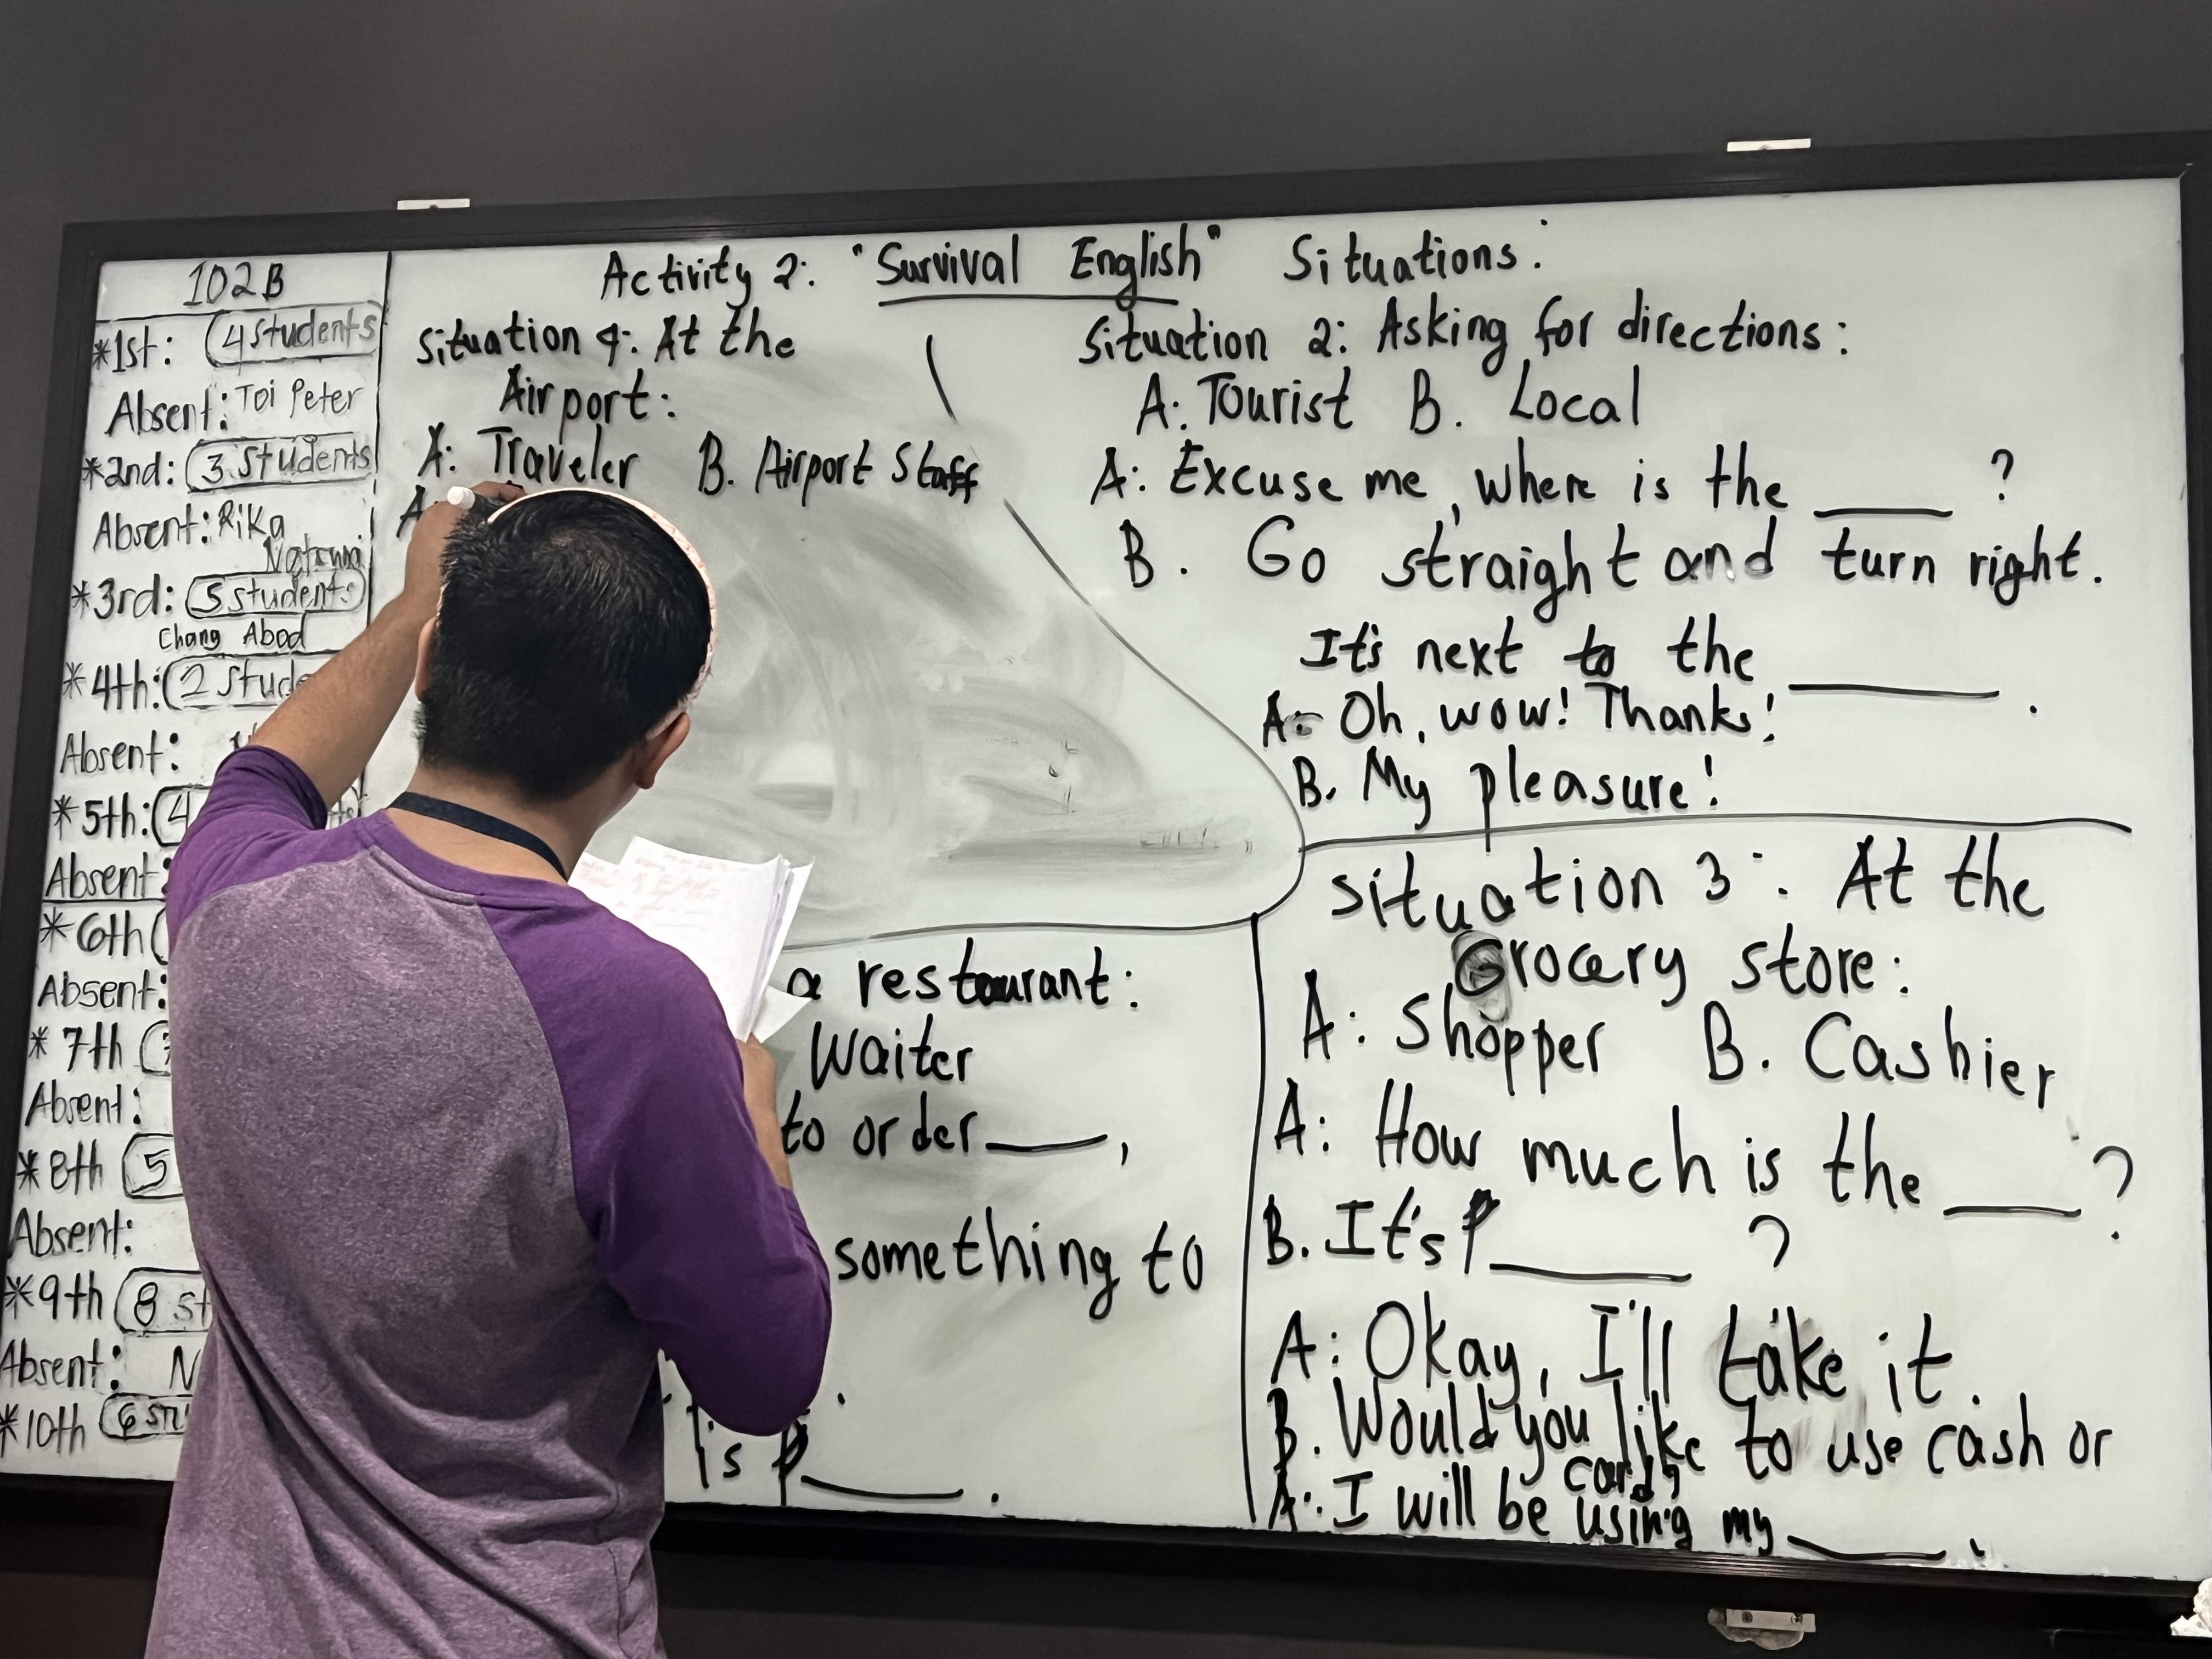 102B
*1st: 4 students
Absent: Toi Peter
*2nd: 3 students
Absent: Rika
*3rd: 5 students
Chang Abod
*4th: 2
Absent:
*5th: 4
Absent:
*6th
Absent:
* 7th
Absent:
*8th 5
Absent:
*9th 8
Absent:
*10th 6
Activity 2: "Survival English" Situations:
Situation 4: At the
Airport:
A: Traveler B. Airport Staff
A
Situation 2: Asking for directions:
A: Tourist B. Local
A: Excuse me, where is the ____ ?
B. Go straight and turn right.
It's next to the ____ .
A: Oh, wow! Thanks!
B. My pleasure!
a restaurant:
Waiter
to order ____,
something to
is ₱____ .
Situation 3: At the
Grocery store:
A: Shopper B. Cashier
A: How much is the ____ ?
B. It's ₱____ ?
A: Okay, I'll take it.
B. Would you like to use cash or
card?
A: I will be using my ____ .